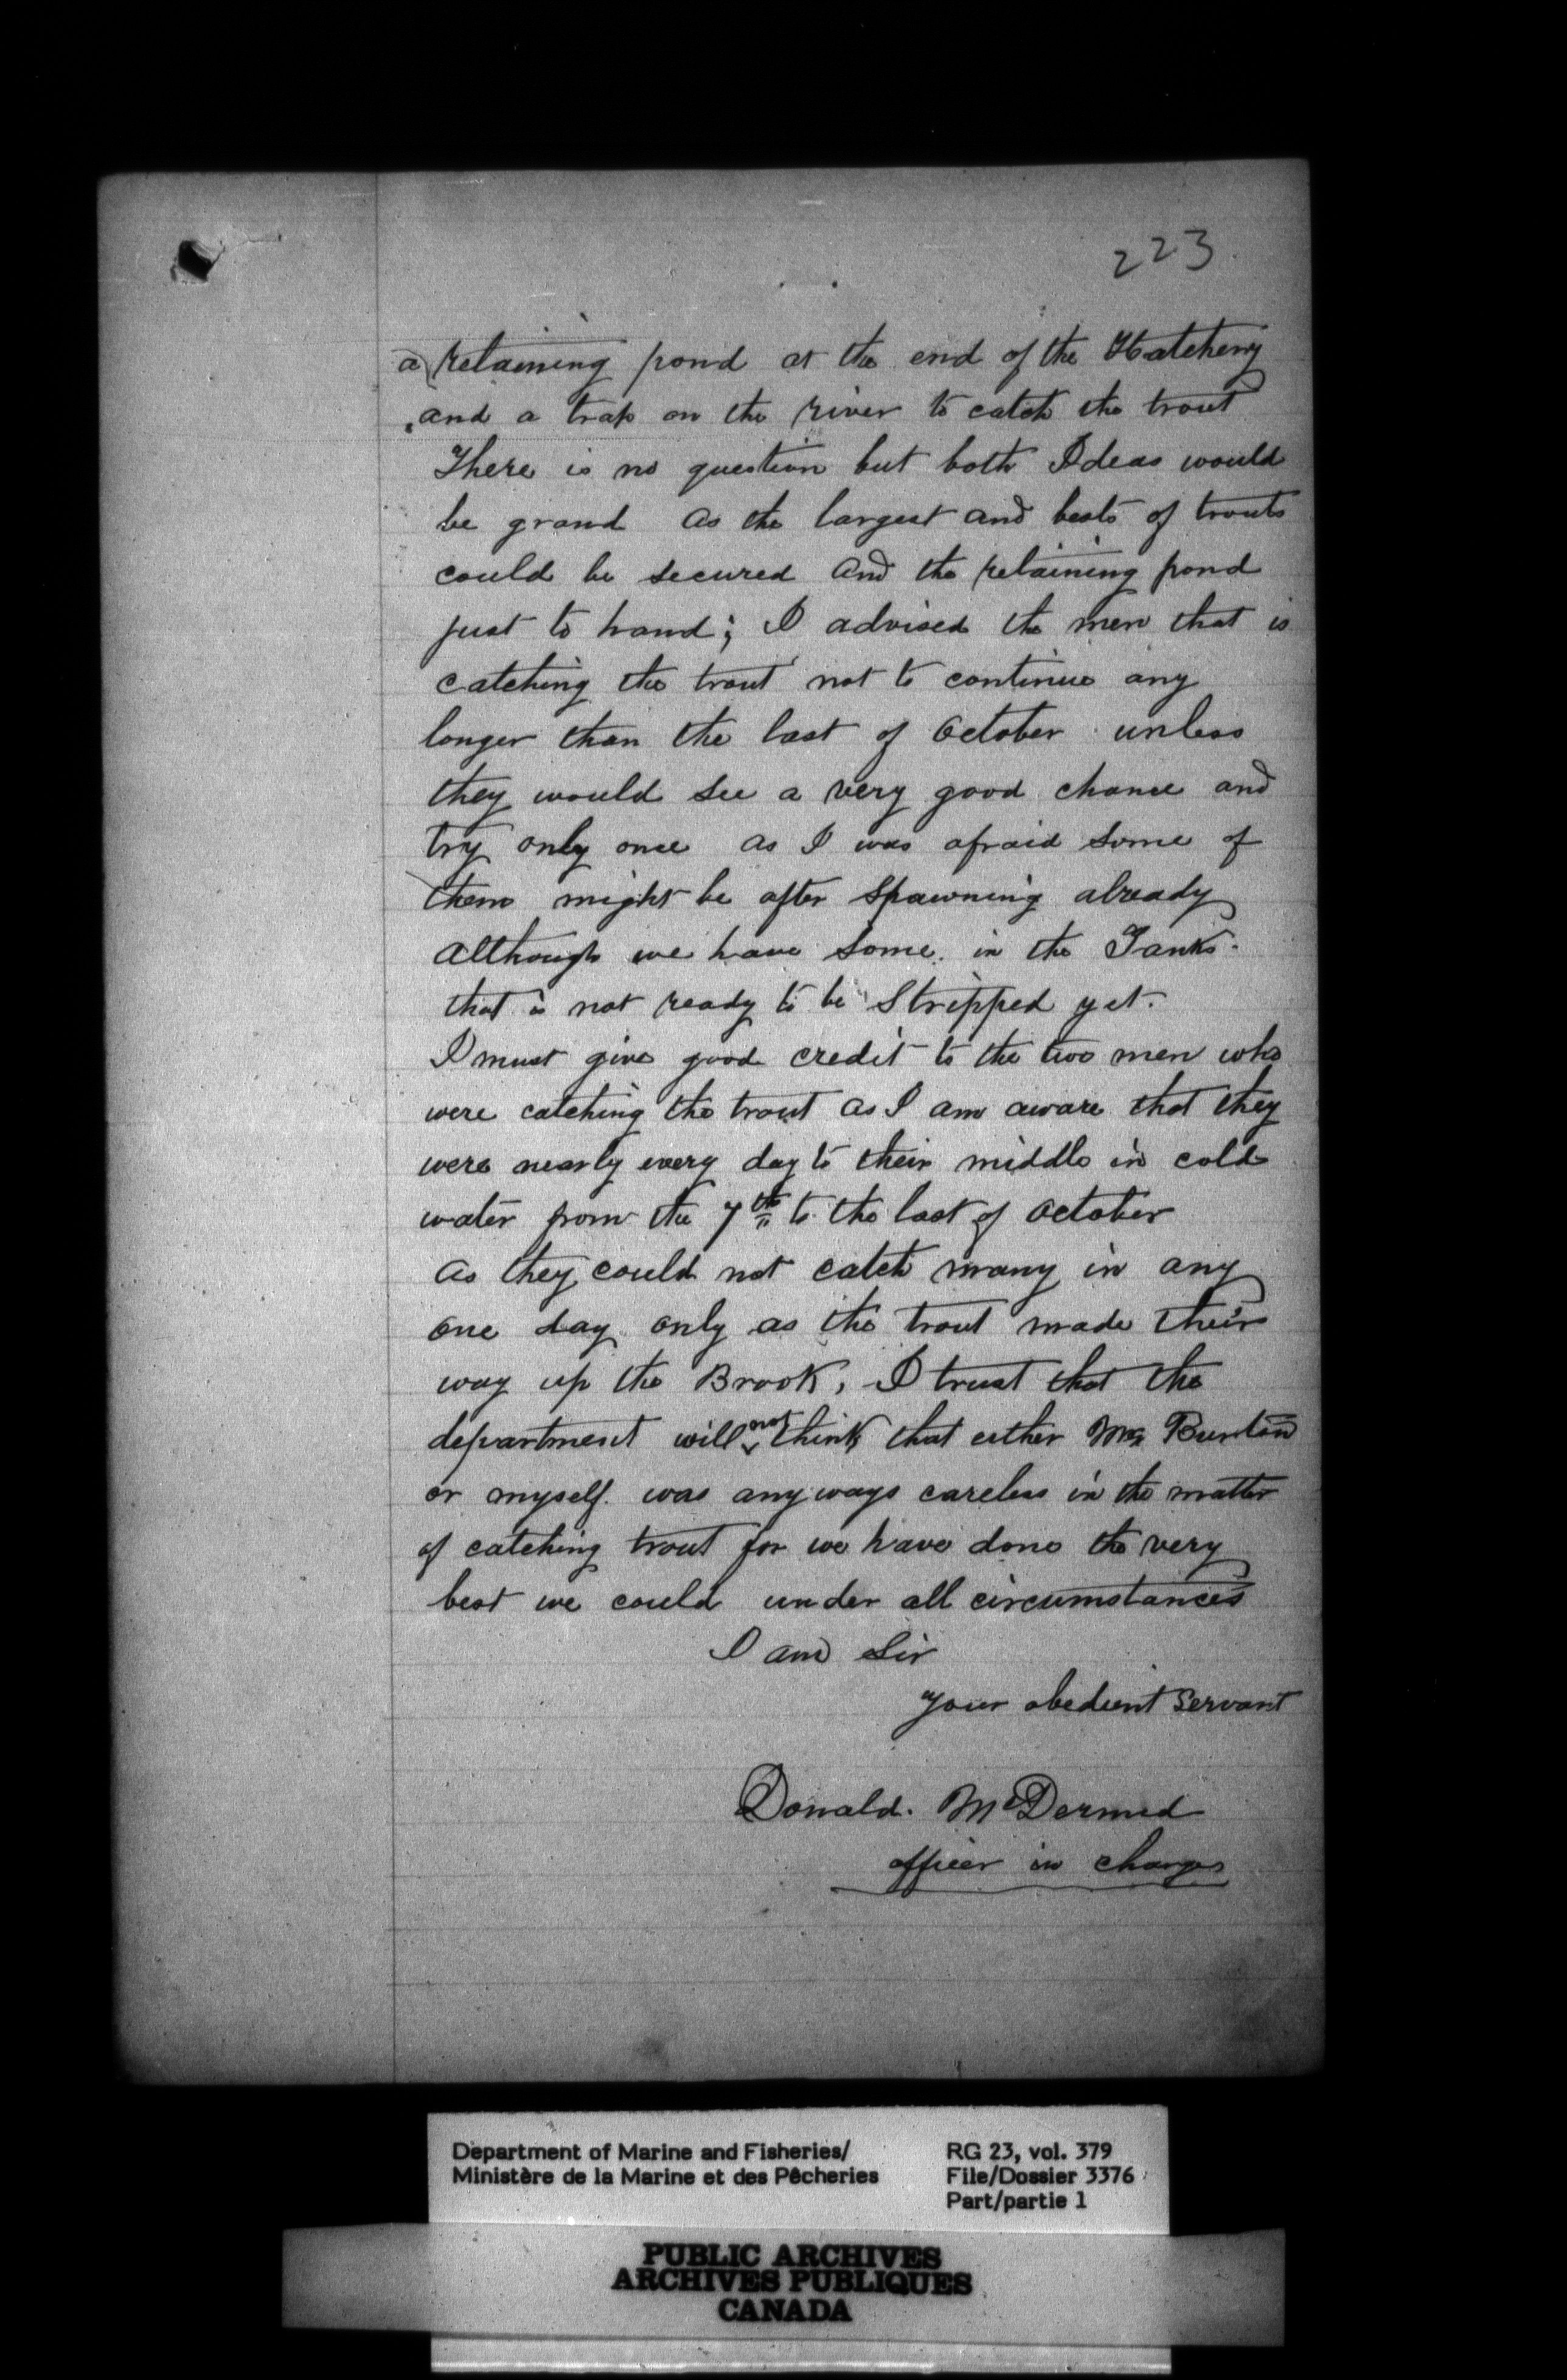 223.
a retaining pond at the end of the Hatchery
and a trap on the river to catch the trout
There is no question but both Ideas would
be grand as the largest and bests of trouts
could be secured and the retaining pond
just to hand; I advised the men that is
catching the trout not to continue any
longer than the last of October unless
they would see a very good chance and
try only once as I was afraid some of
them might be after spawning already
although we have some in the Tanks.
that is not ready to be Stripped yet.
I must give good credit to the two men who
were catching the trout as I am aware that they
were nearly every day to their middle in cold
water from the 7th to the last of October
as they could not catch many in any
one day only as the trout made their
way up the Brook, I trust that the
department will not think that either Mr Buntain
or myself. was any ways careless in the matter
of catching trout for we have done the very
best we could under all circumstances
I am Sir
your obedient Servant
Donald. McDermid
officer in charge
Department of Marine and Fisheries/
Ministère de la Marine et des Pêcheries
RG 23, vol. 379
File/Dossier 3376
Part/partie 1
PUBLIC ARCHIVES
ARCHIVES PUBLIQUES
CANADA